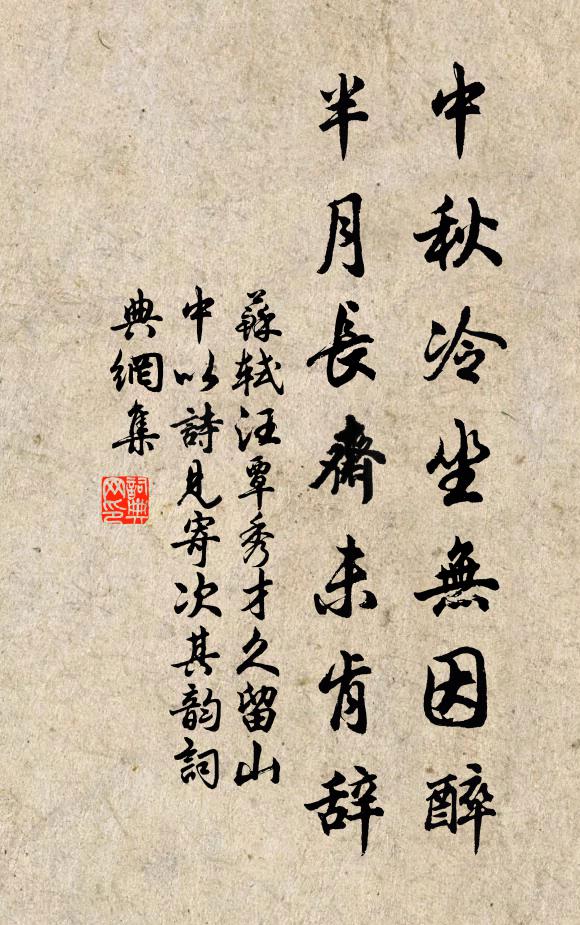 中秋冷坐無因醉
半月長齋未肯辞
蘇軾汪覃秀才久留山
中以詩見寄次其韵詞
典網集
詞典
网印